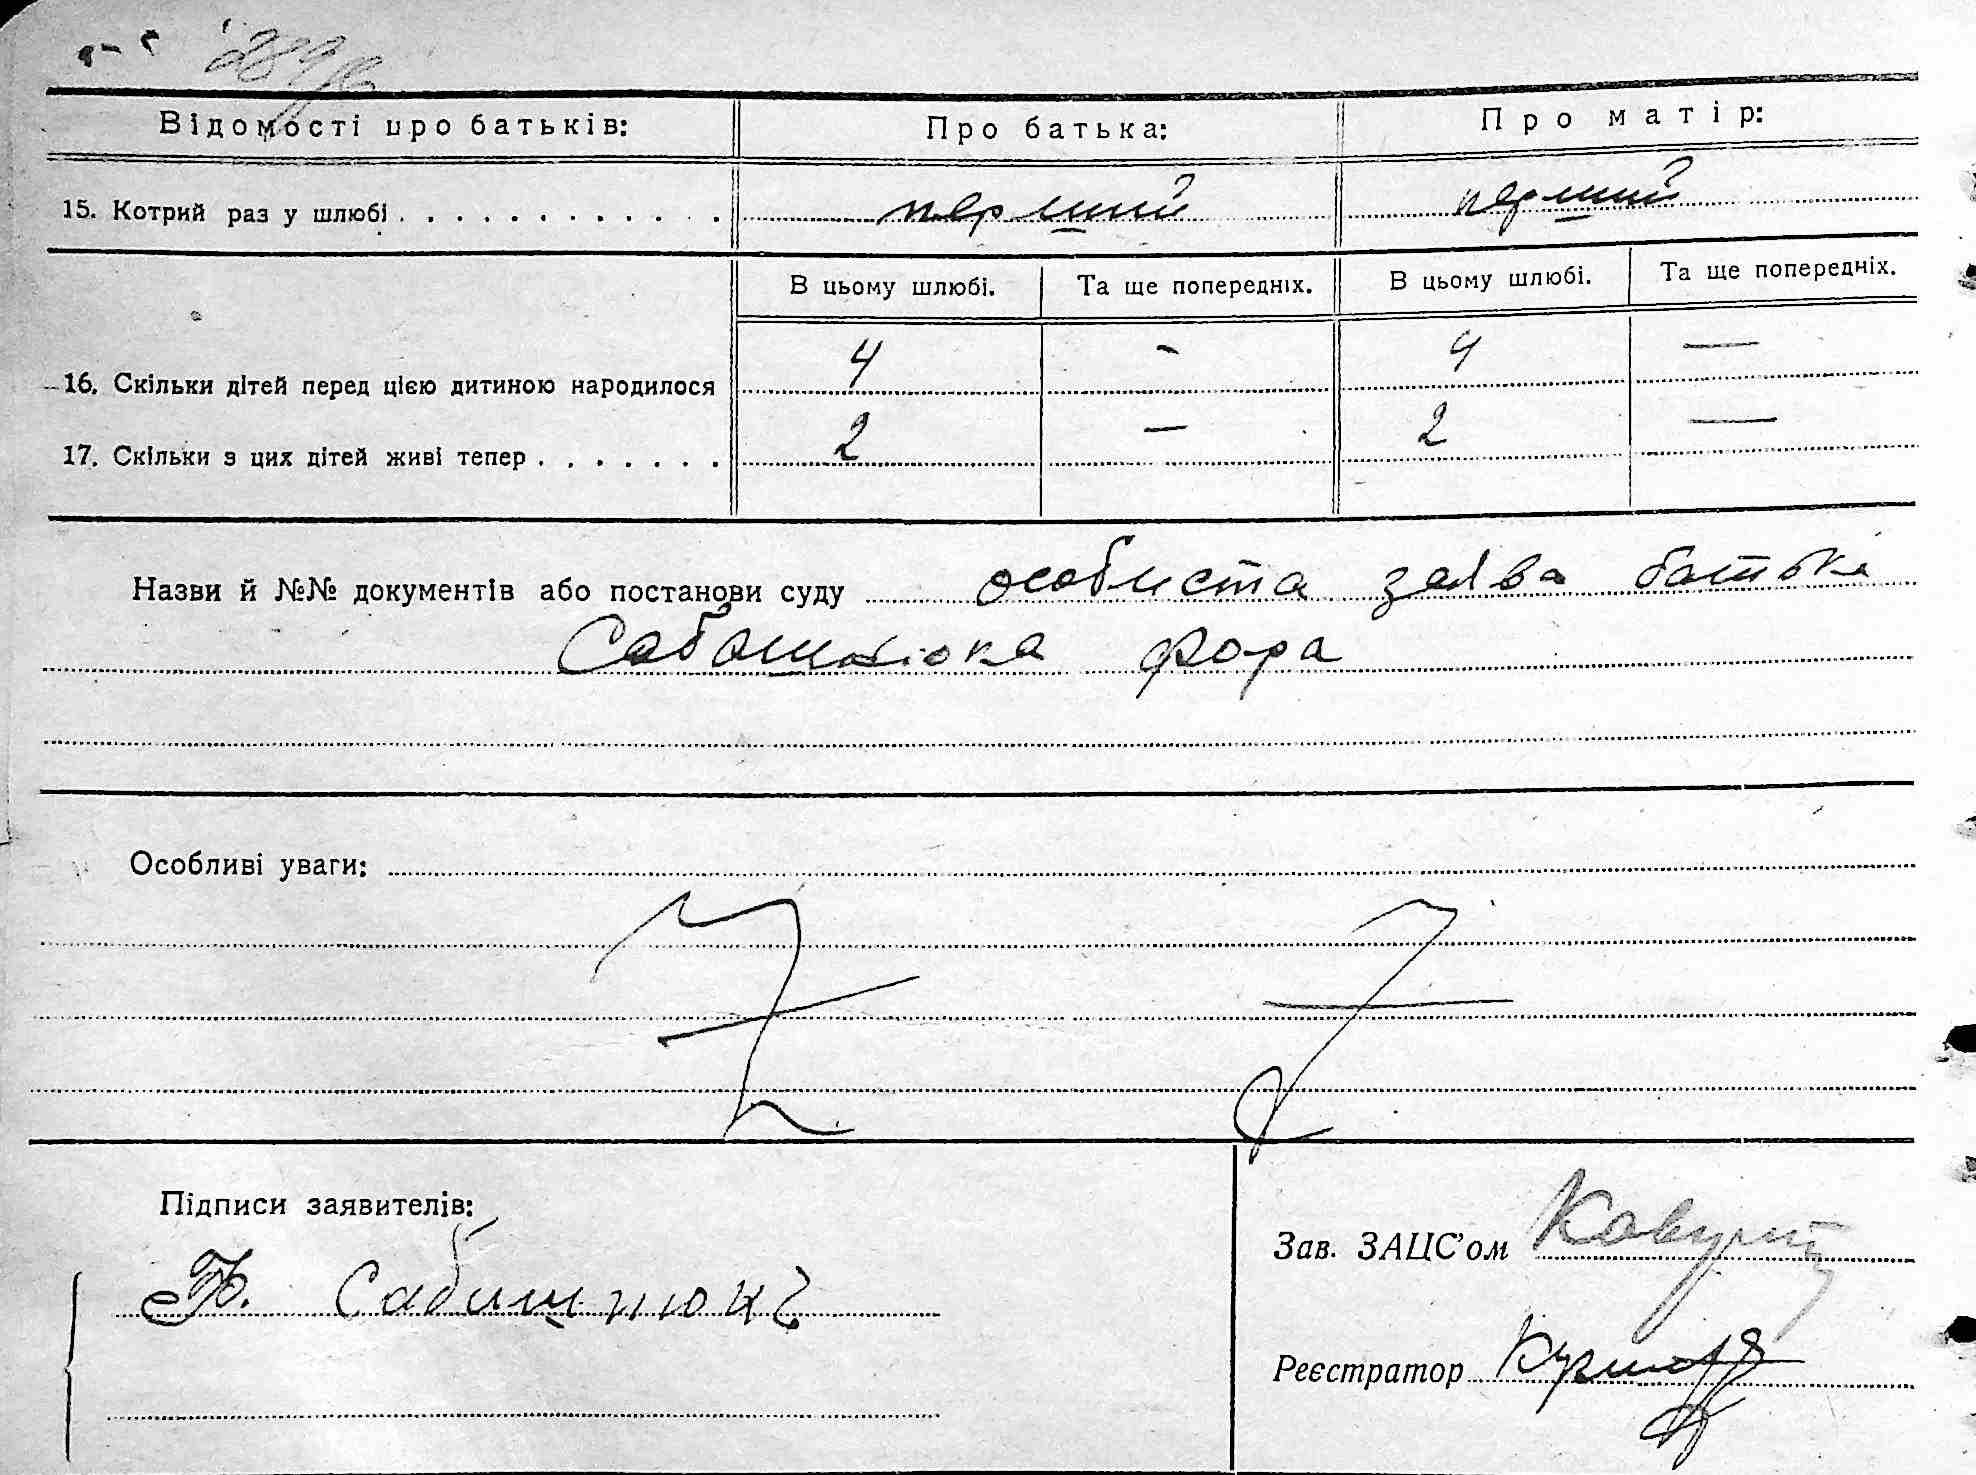 Відомості про батьків: Про батька: Про матір:
15. Котрий раз у шлюбі . . . . . . . . . . . . перший перший
В цьому шлюбі. Та ще попередніх. В цьому шлюбі. Та ще попередніх.
16. Скільки дітей перед цією дитиною народилося 4 - 4 —
17. Скільки з цих дітей живі тепер . . . . . . . 2 — 2 —
Назви й №№ документів або постанови суду особиста заява батька
Сабашнюка
Особливі уваги:
Підписи заявителів:
Зав. ЗАЦС'ом
Реєстратор